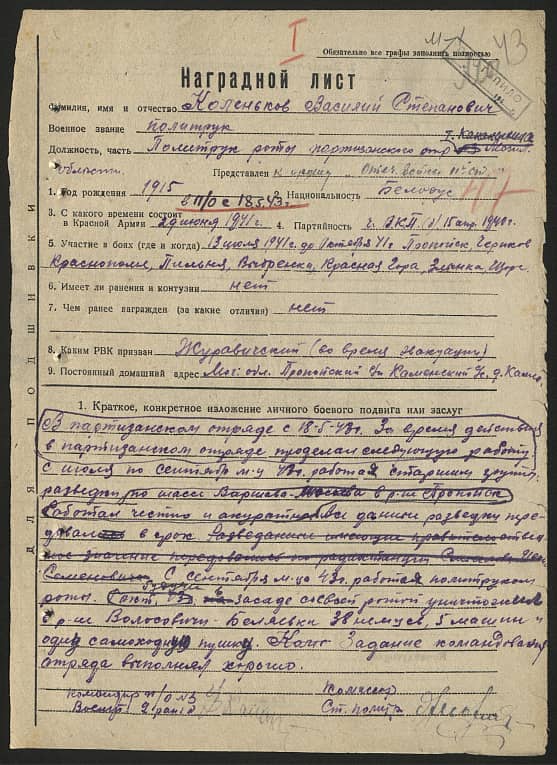 I
М-1
43
Обязательно все графы заполнить полностью
Наградной лист
Фамилия, имя и отчество Коленьков Василий Степанович
Военное звание политрук
Должность, часть Политрук роты партизанского отр Могил.
области.
Представлен к ордену Отеч. войны II ст.
1. Год рождения 1915 2. Национальность белорус
в п/о с 18.5.43г.
3. С какого времени состоит
в Красной Армии 2 июня 1941г. 4. Партийность
5. Участие в боях (где и когда) 13 июля 1941г. до 41г. Пропойск, Чериков
Краснополье, Пильня, Выдренка, Красная Гора, Злынка
6. Имеет ли ранения и контузии нет
7. Чем ранее награжден (за какие отличия) нет
8. Каким РВК призван Журавичский (во время эвакуации)
9. Постоянный домашний адрес Мог. обл. Пропойский Каменский
ДЛЯ ПОДШИВКИ
1. Краткое, конкретное изложение личного боевого подвига или заслуг
В партизанском отряде с 18-5-43г. За время действия
в партизанском отряде проделал следующую работу
с июля по сентябрь м-ц 43г. работая старшим групп.
разведки по шасси Варшава-Москва в р-не Пропойск
Работал честно и акуратно Все данные разведки пре-
давал в срок. Разведданные имеющие
значение передовались по радиостанции
Семеновича. С сентября м-ца 43г. работая политруком
роты. засаде своей ротой уничтожил
в р-не Волосовичи-Беляевка 38 немцев, 3 машин и
одну самоходную пушку. Задание командования
отряда выполнял хорошо.
Командир п/о №3
Комиссар
Ст. политр.